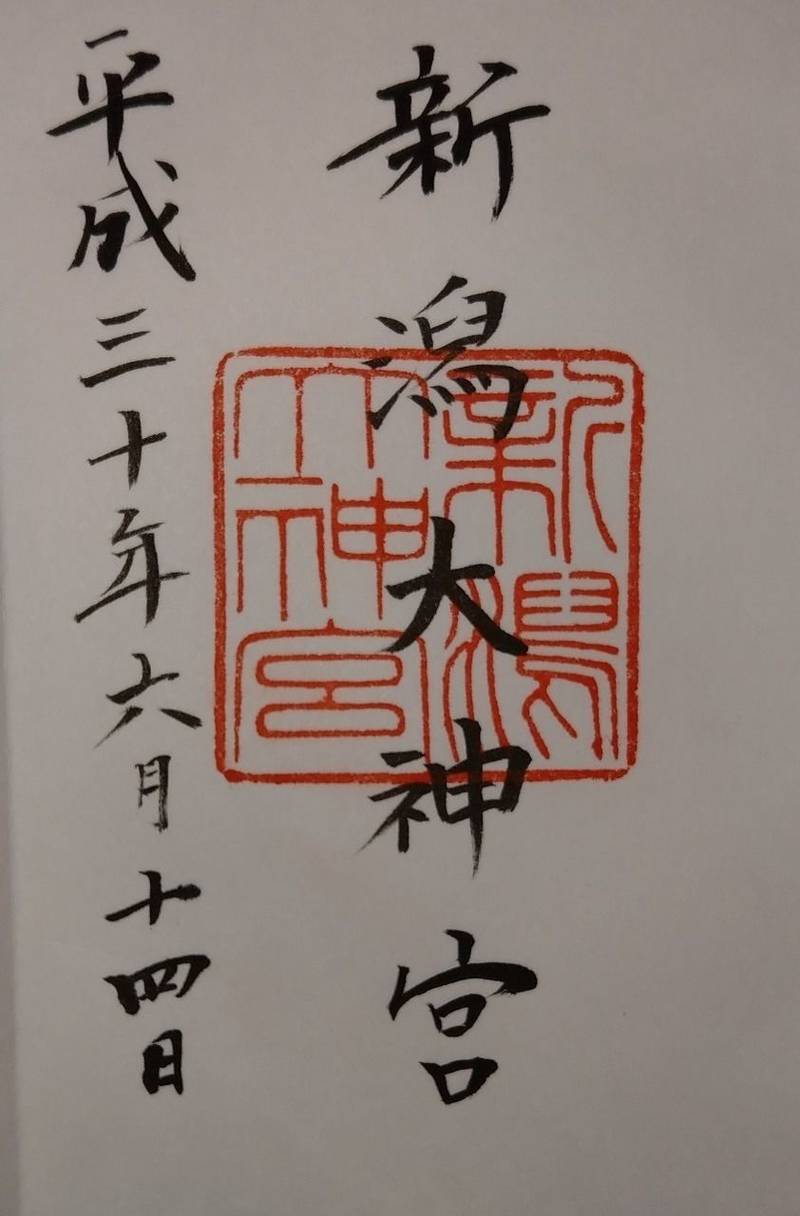 新潟大神宮
新潟大神宮
平成三十年六月十四日